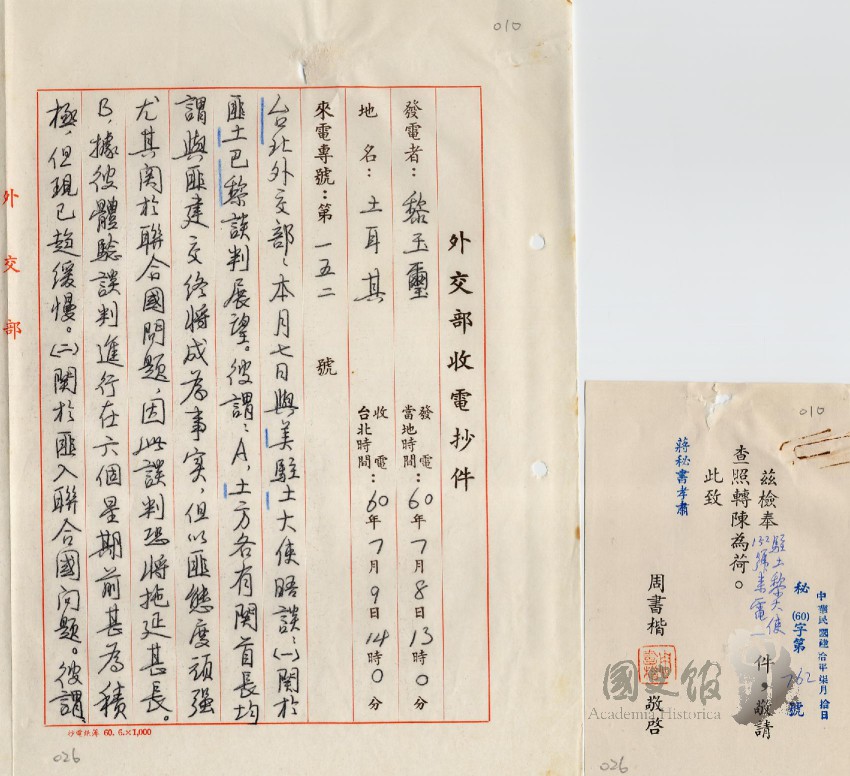 010
外交部收電抄件
發電者：黎玉璽
發電當地時間：60年7月8日13時0分
地名：土耳其
收電台北時間：60年7月9日14時0分
來電專號：第一五二號
台北外交部：本月七日與美駐土大使晤談：(一)關於
匪土巴黎談判展望。彼謂：A，土方各有關首長均
謂與匪建交終將成為事实，但以匪態度頑強
尤其関於聯合國問題，因此談判恐將拖延甚長。
B，據彼體驗談判進行在六個星期前甚為積
極，但現已趋緩慢。(二)関於匪入聯合國问題。彼謂：
外交部
抄電紙薄 60. 6.×1,000
026
010
中華民國陸拾年柒月拾日
秘(60)字第762號
茲檢奉駐土黎大使152號來電一件，敬請
查照轉陳為荷。
此致
蔣秘書孝肅
周書楷 敬啓
國史館
Academia Historica
026